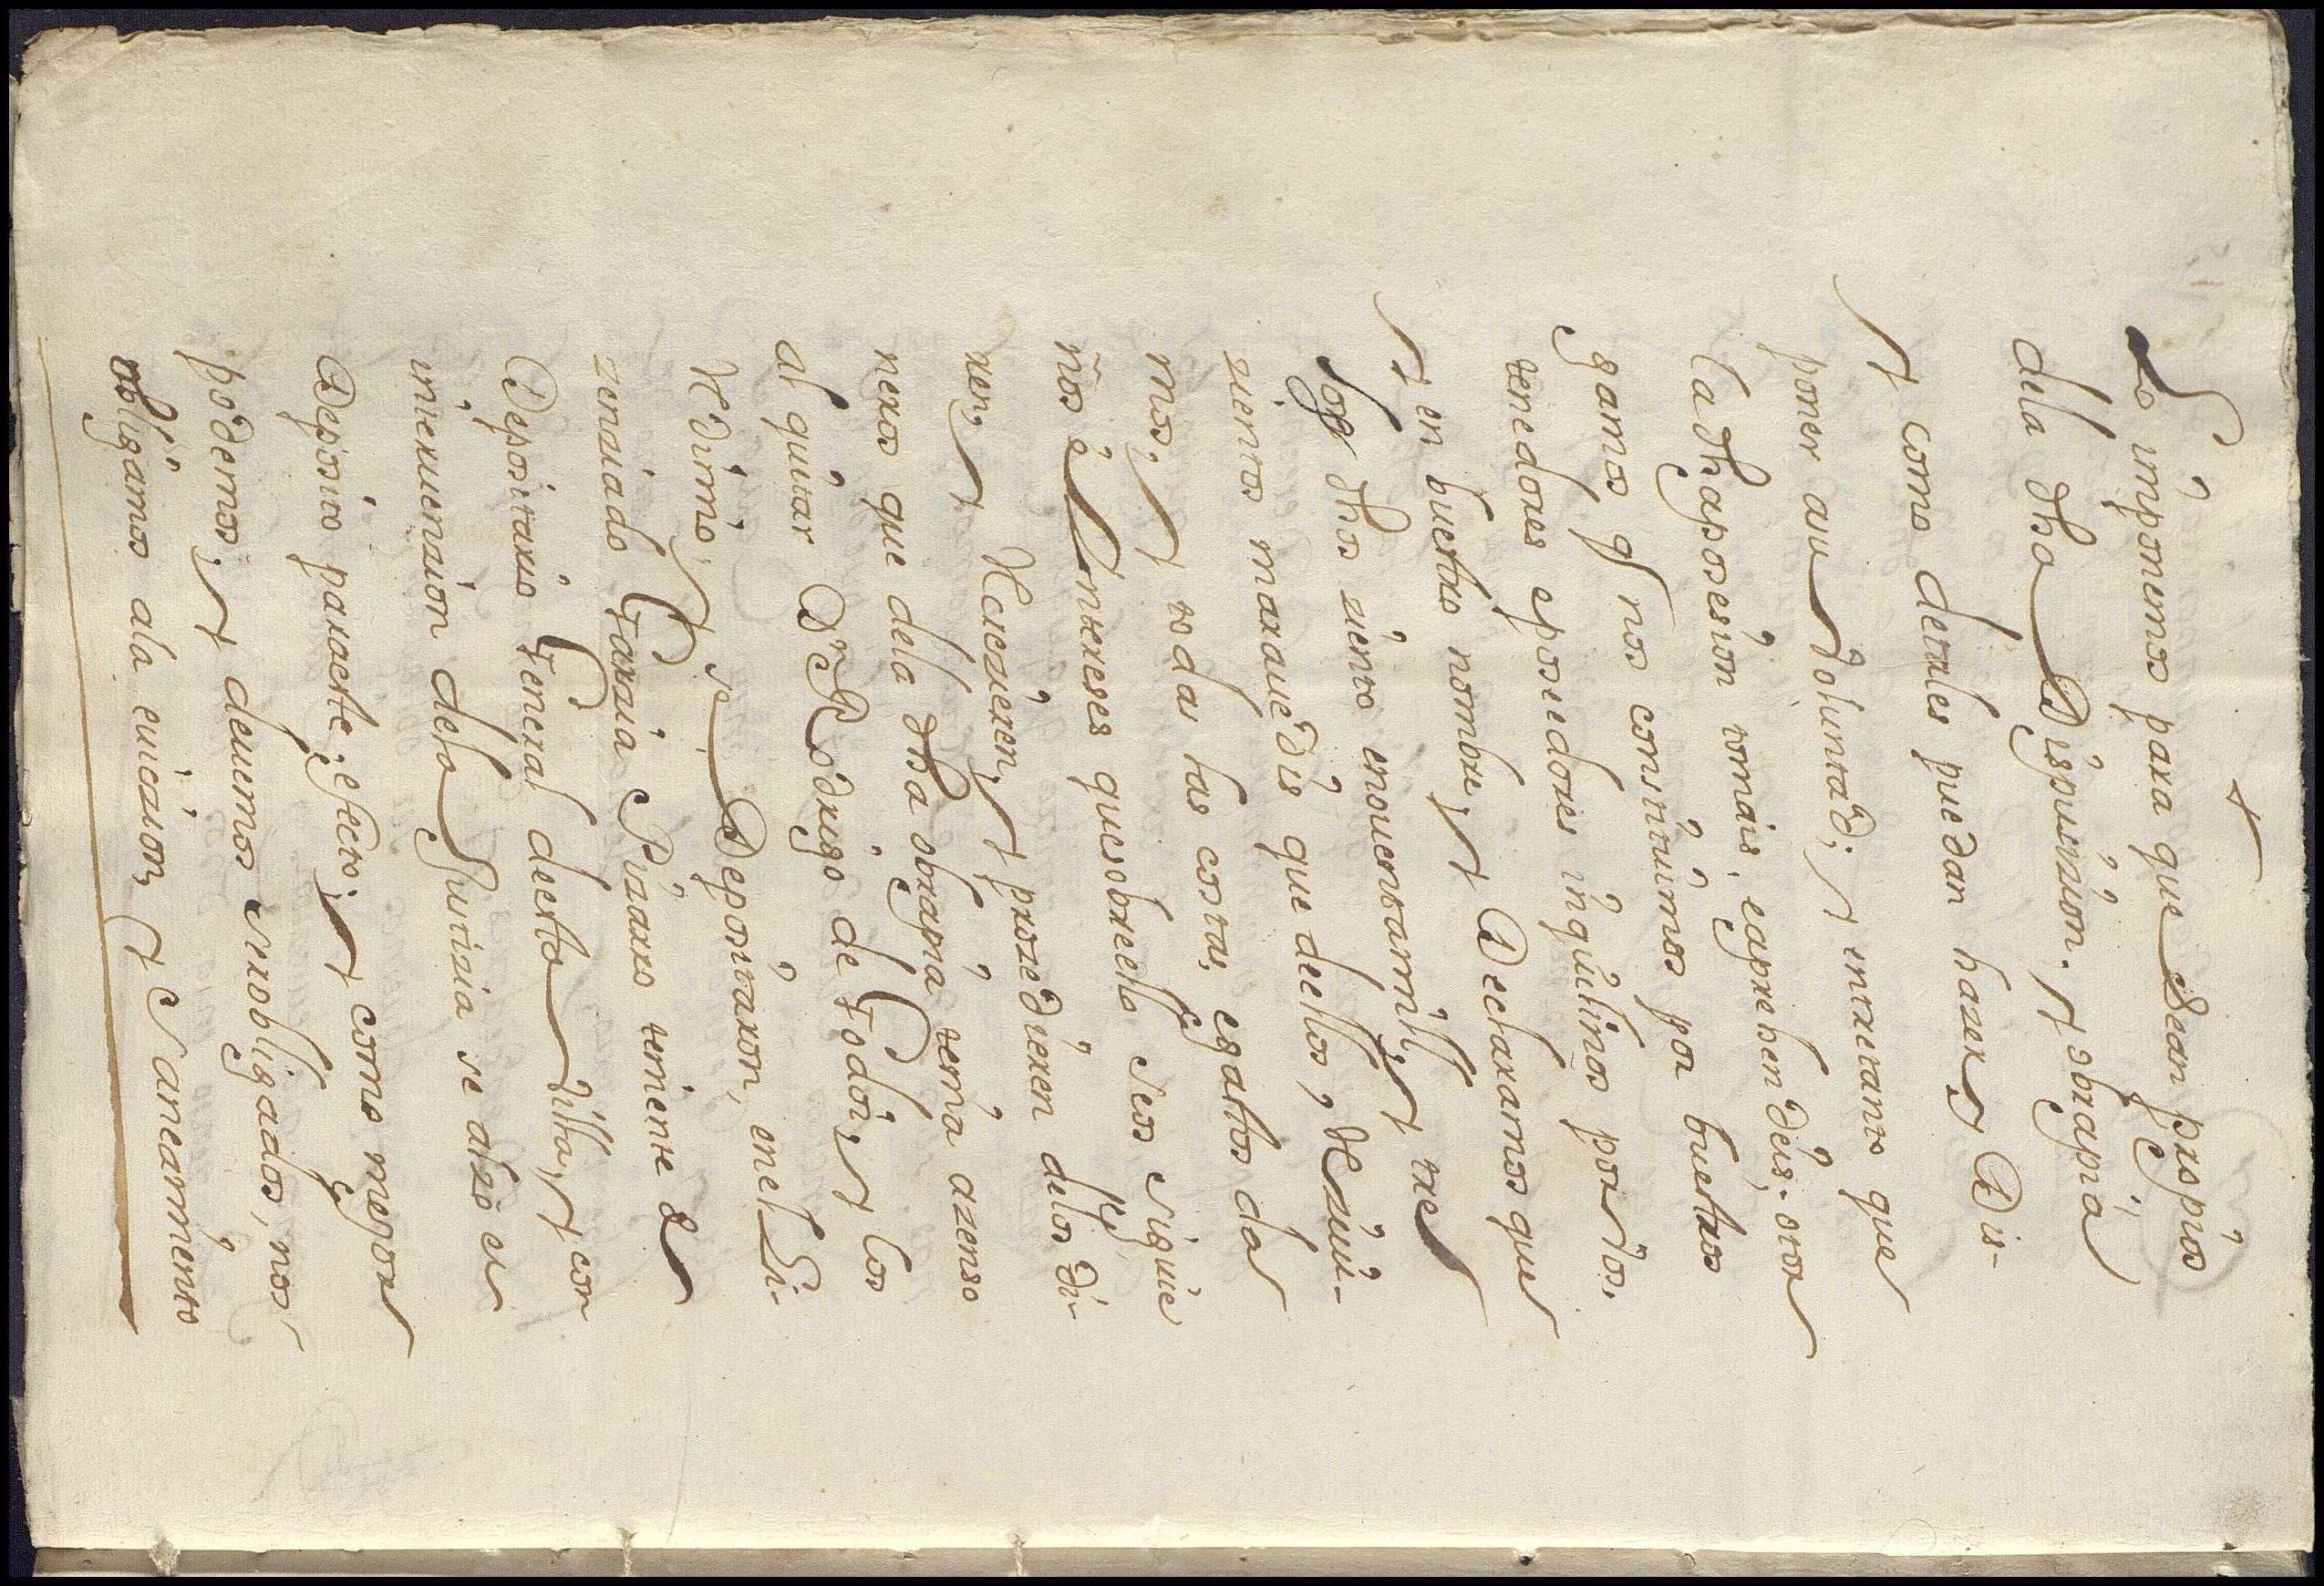 Lo imponemos para que sean propios
dela dha Dispusizion, y obrapia
y como detales puedan hazer y Dis-
poner asu Voluntad; y entretanto que
la dha posesion tomais, e aprehendeis; otor
gamos q nos constituimos por buestros
tenedores e posedores inquilinos por Vos,
y en buestro nombre, y Declaramos que
los dhos ziento e nobenta mill y tre
zientos marauedis que dellos, Reziui-
mos, y todas las costas, e gastos da
ños e Yntereses que sobre ello se os siguie
ren, y Recrezieren, y prozedieren delos di-
neros que dela dha obrapia tenia azenso
al quitar Dn Rodrigo de Godoi, y los
Redimio, y se Depositaron, en el Li-
zenziado Garzia Pizarro teniente de
Depositario General desta Villa, y con
interuenzion dela Justizia se alzo el
Deposito para este efecto; y como mejor
podemos, y deuemos ser obligados, nos
obligamos ala euiczion, y Saneamiento